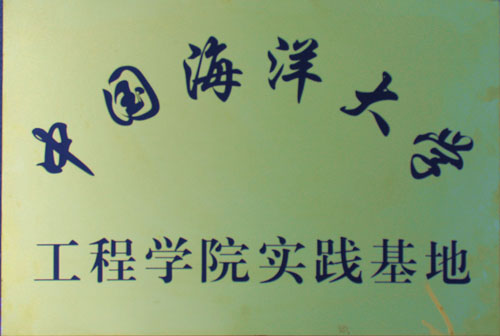 中国海洋大学
工程学院实践基地